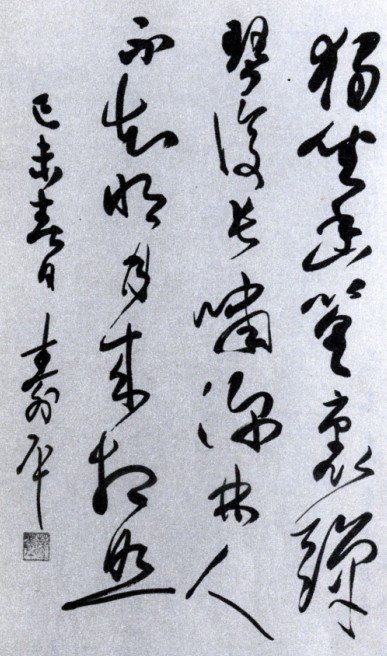 獨坐幽篁裏彈
琴復長嘯深林人
不知明月來相照
己未春日